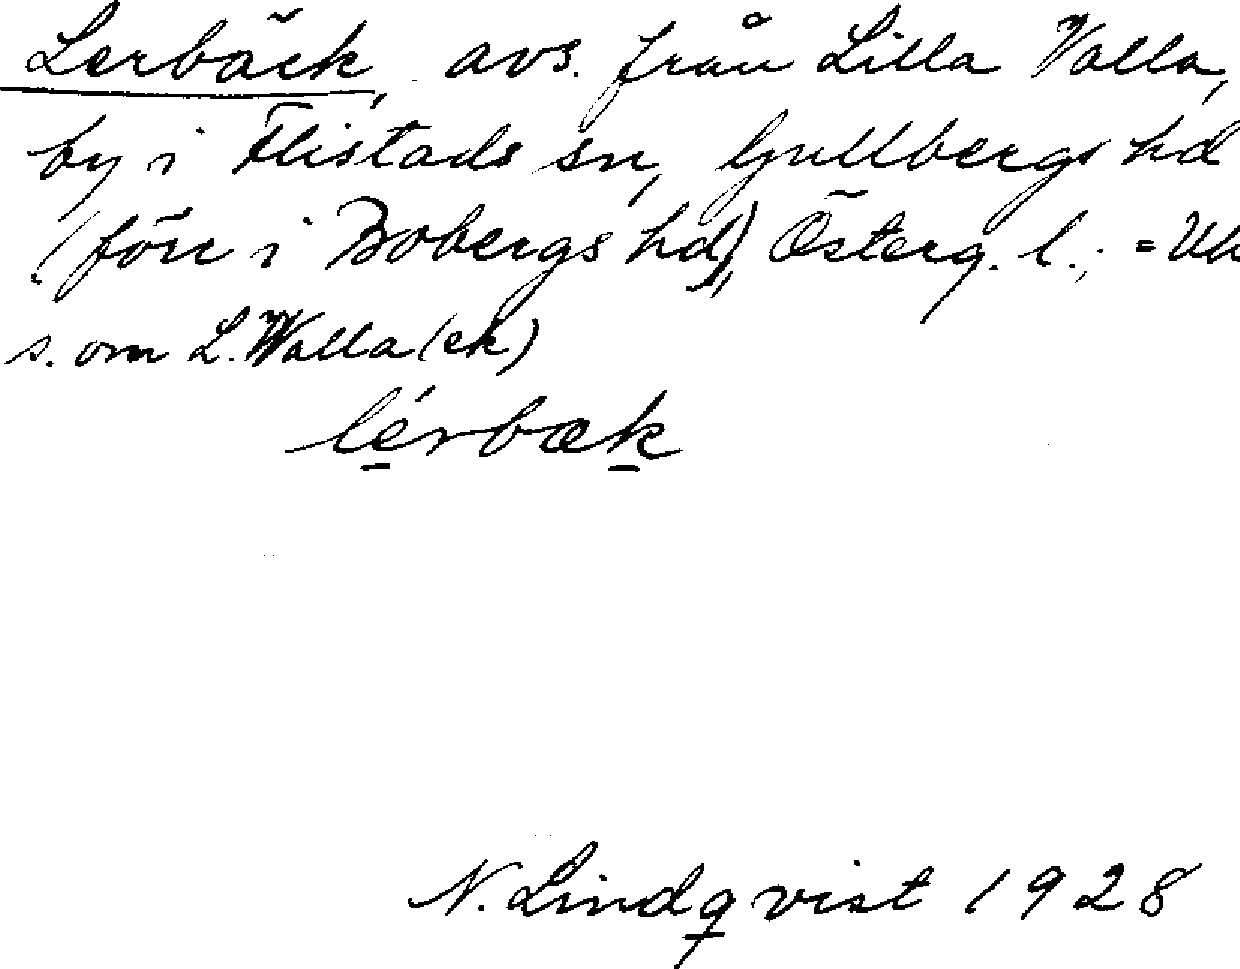 Lerbäck, avs. från Lilla Valla,
by i Flistads sn, Gullbergs hd
(förr i Bobergs hd), Österg. l.; = Uh
s. om L. Walla (ek)
lérbæk
N. Lindqvist 1928